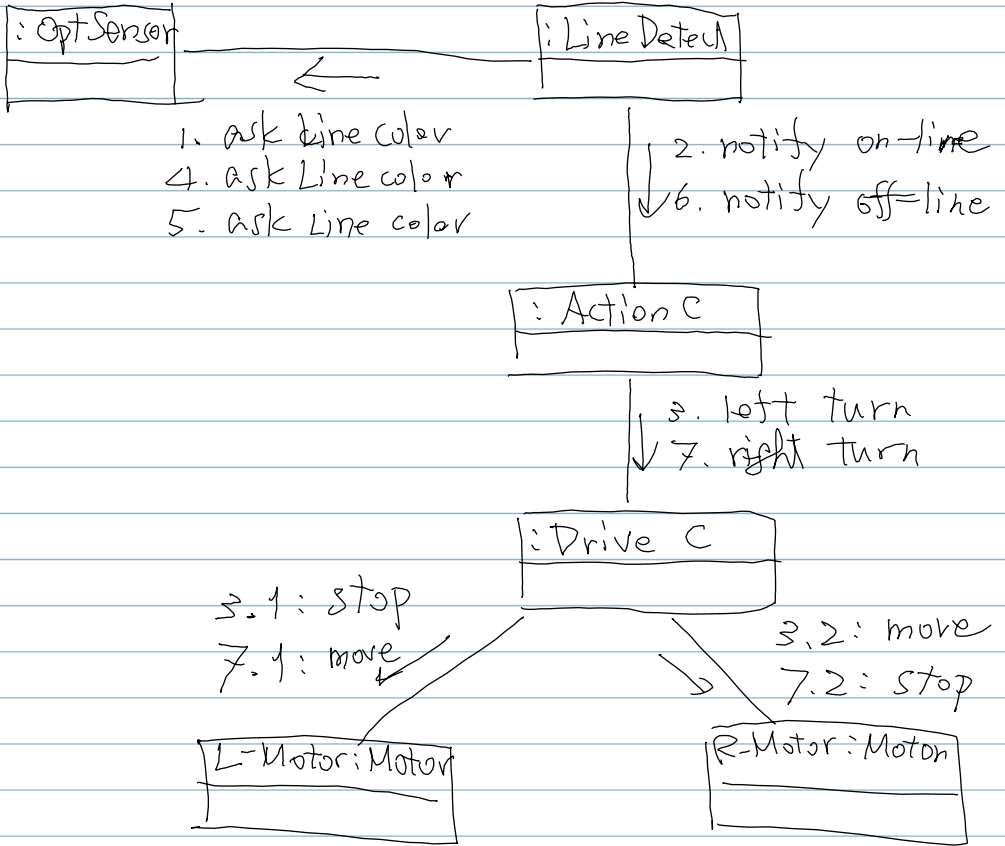 : OptSensor
: Line Detect
1. ask Line color
4. ask Line color
5. ask Line color
2. notify on-line
6. notify off-line
: Action C
3. left turn
7. right turn
: Drive C
3.1 : stop
7.1 : move
3.2 : move
7.2 : stop
L-Motor : Motor
R-Motor : Motor